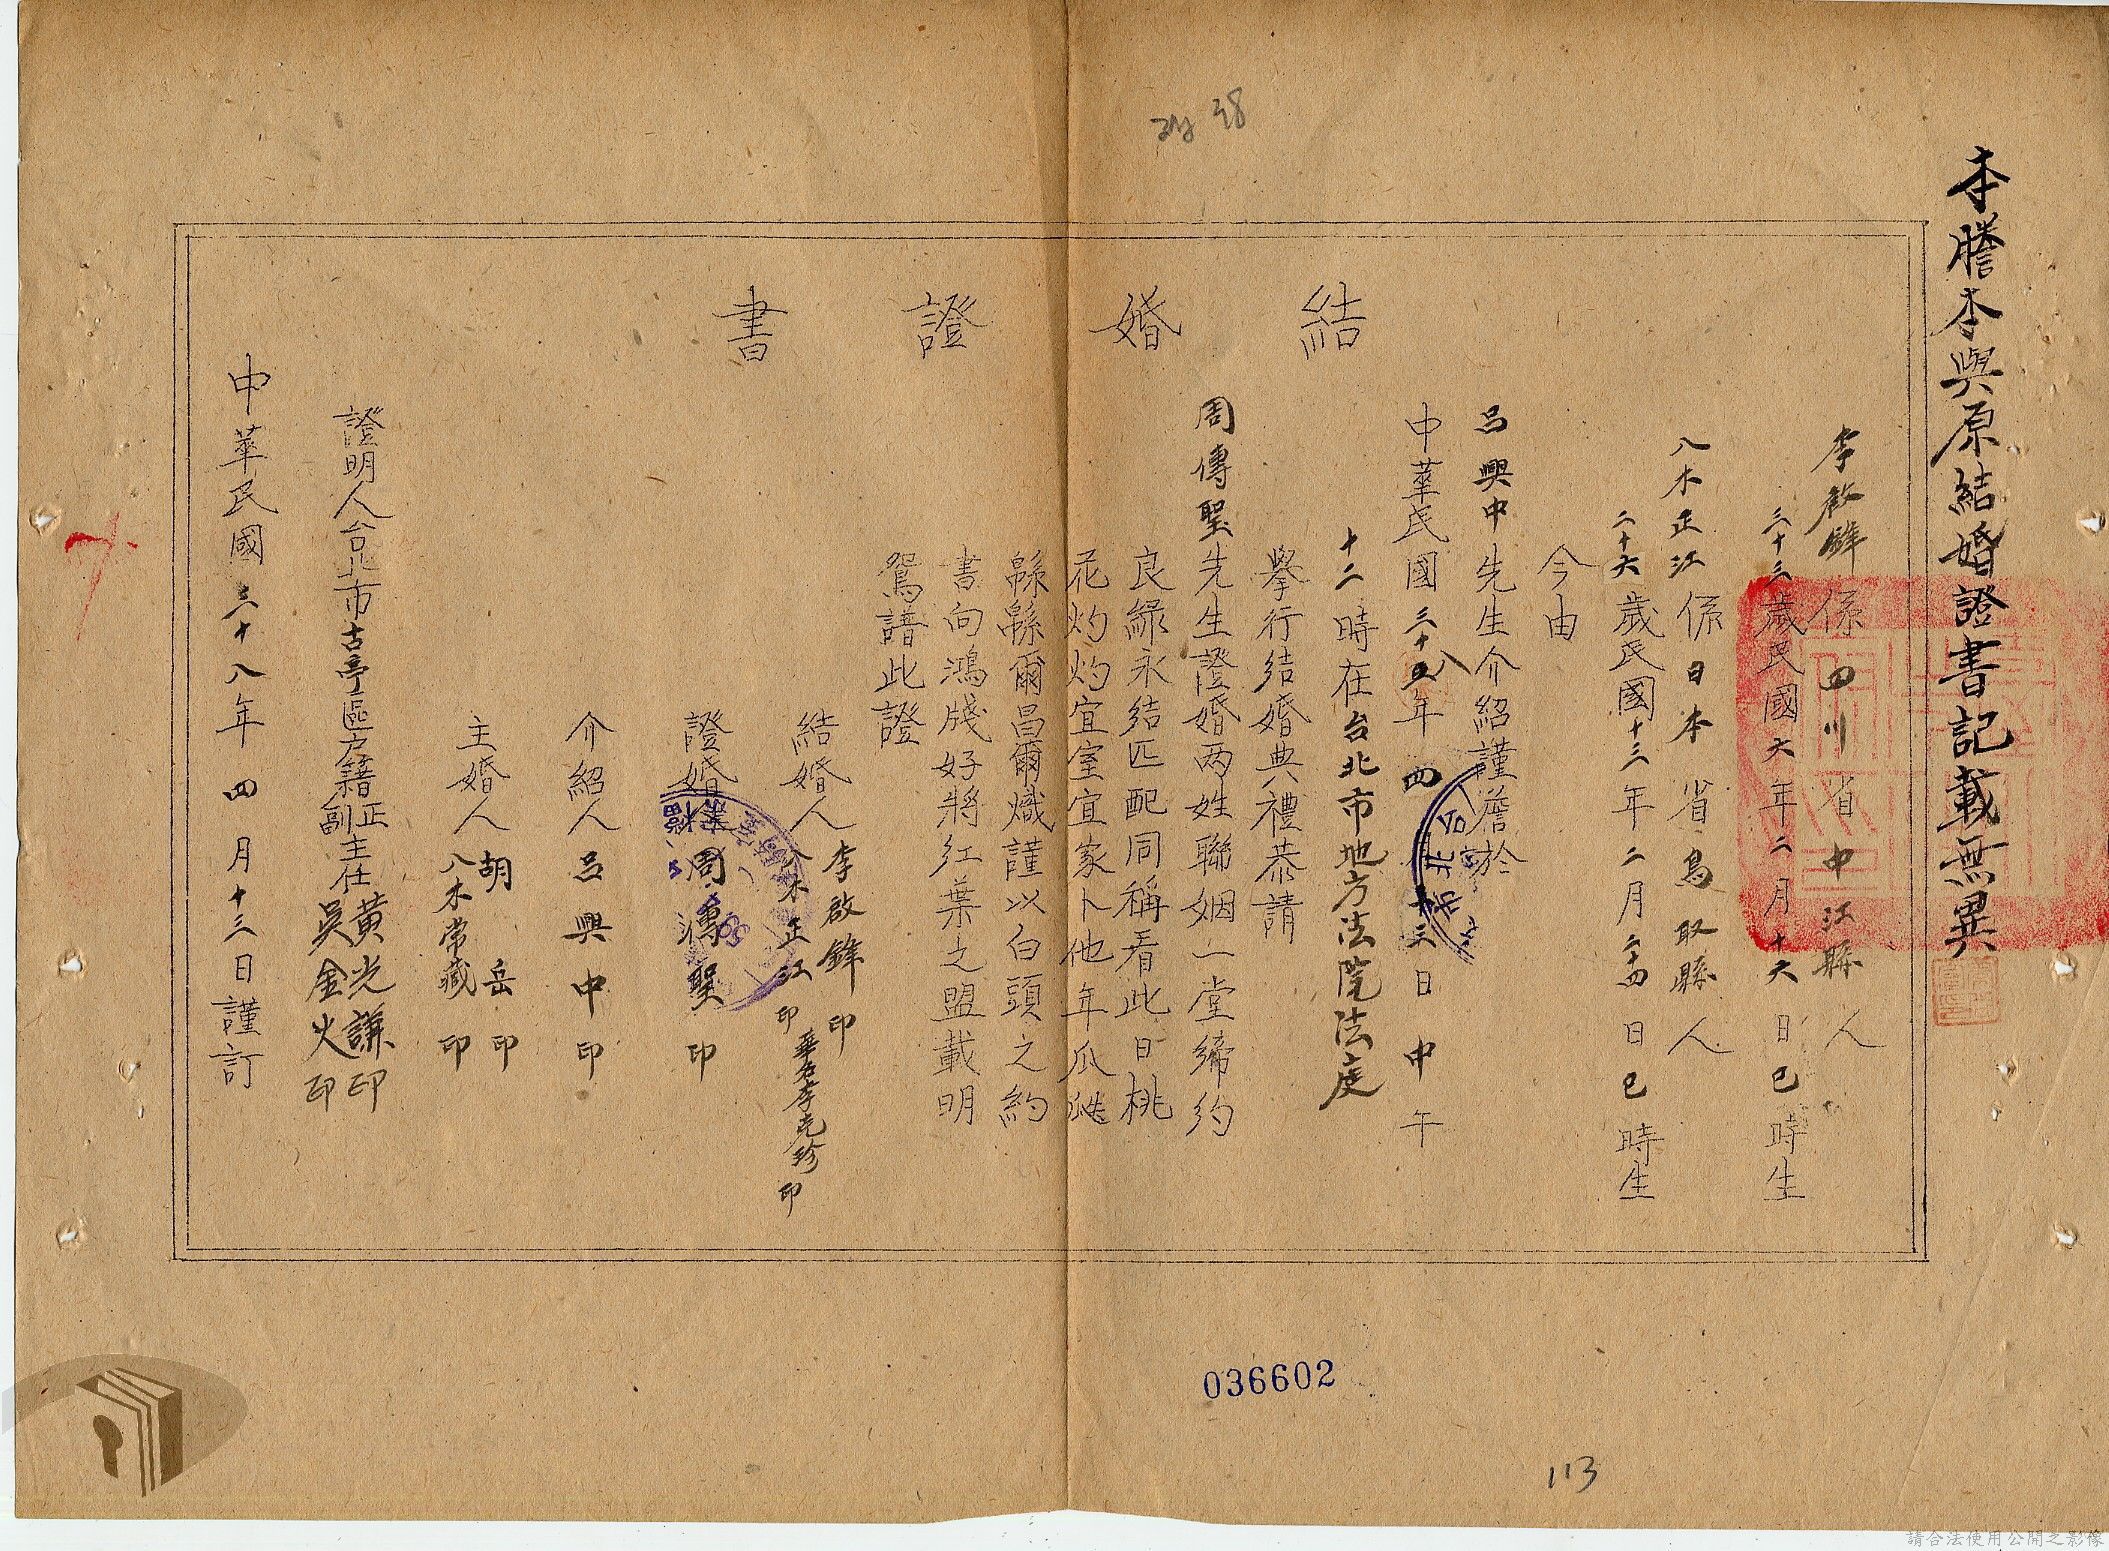 本謄本與原結婚證書記載無異
結婚證書
李啟鋒係四川省中江縣人
三十三歲民國六年二月十六日巳時生
八木正江係日本省鳥取縣人
二十六歲民國十三年二月二十四日巳時生
今由
呂興中先生介紹謹詹於
中華民國三十八年四月十三日中午
十二時在台北市地方法院法庭
舉行結婚典禮恭請
周傳聖先生證婚两姓聯姻一堂締約
良緣永結匹配同稱看此日桃
花灼灼宜室宜家卜他年瓜瓞
緜緜爾昌爾熾謹以白頭之約
書向鴻牋好將紅葉之盟載明
鴛譜此證
結婚人李啟鋒印
八木正江印華名李克珍印
證婚人周傳聖印
介紹人呂興中印
主婚人胡岳印
八木常藏印
證明人台北市古亭區戶籍正主任黃光謙印
副主任吳金火印
中華民國三十八年四月十三日謹訂
台北市
036602
113
請合法使用公開之影像